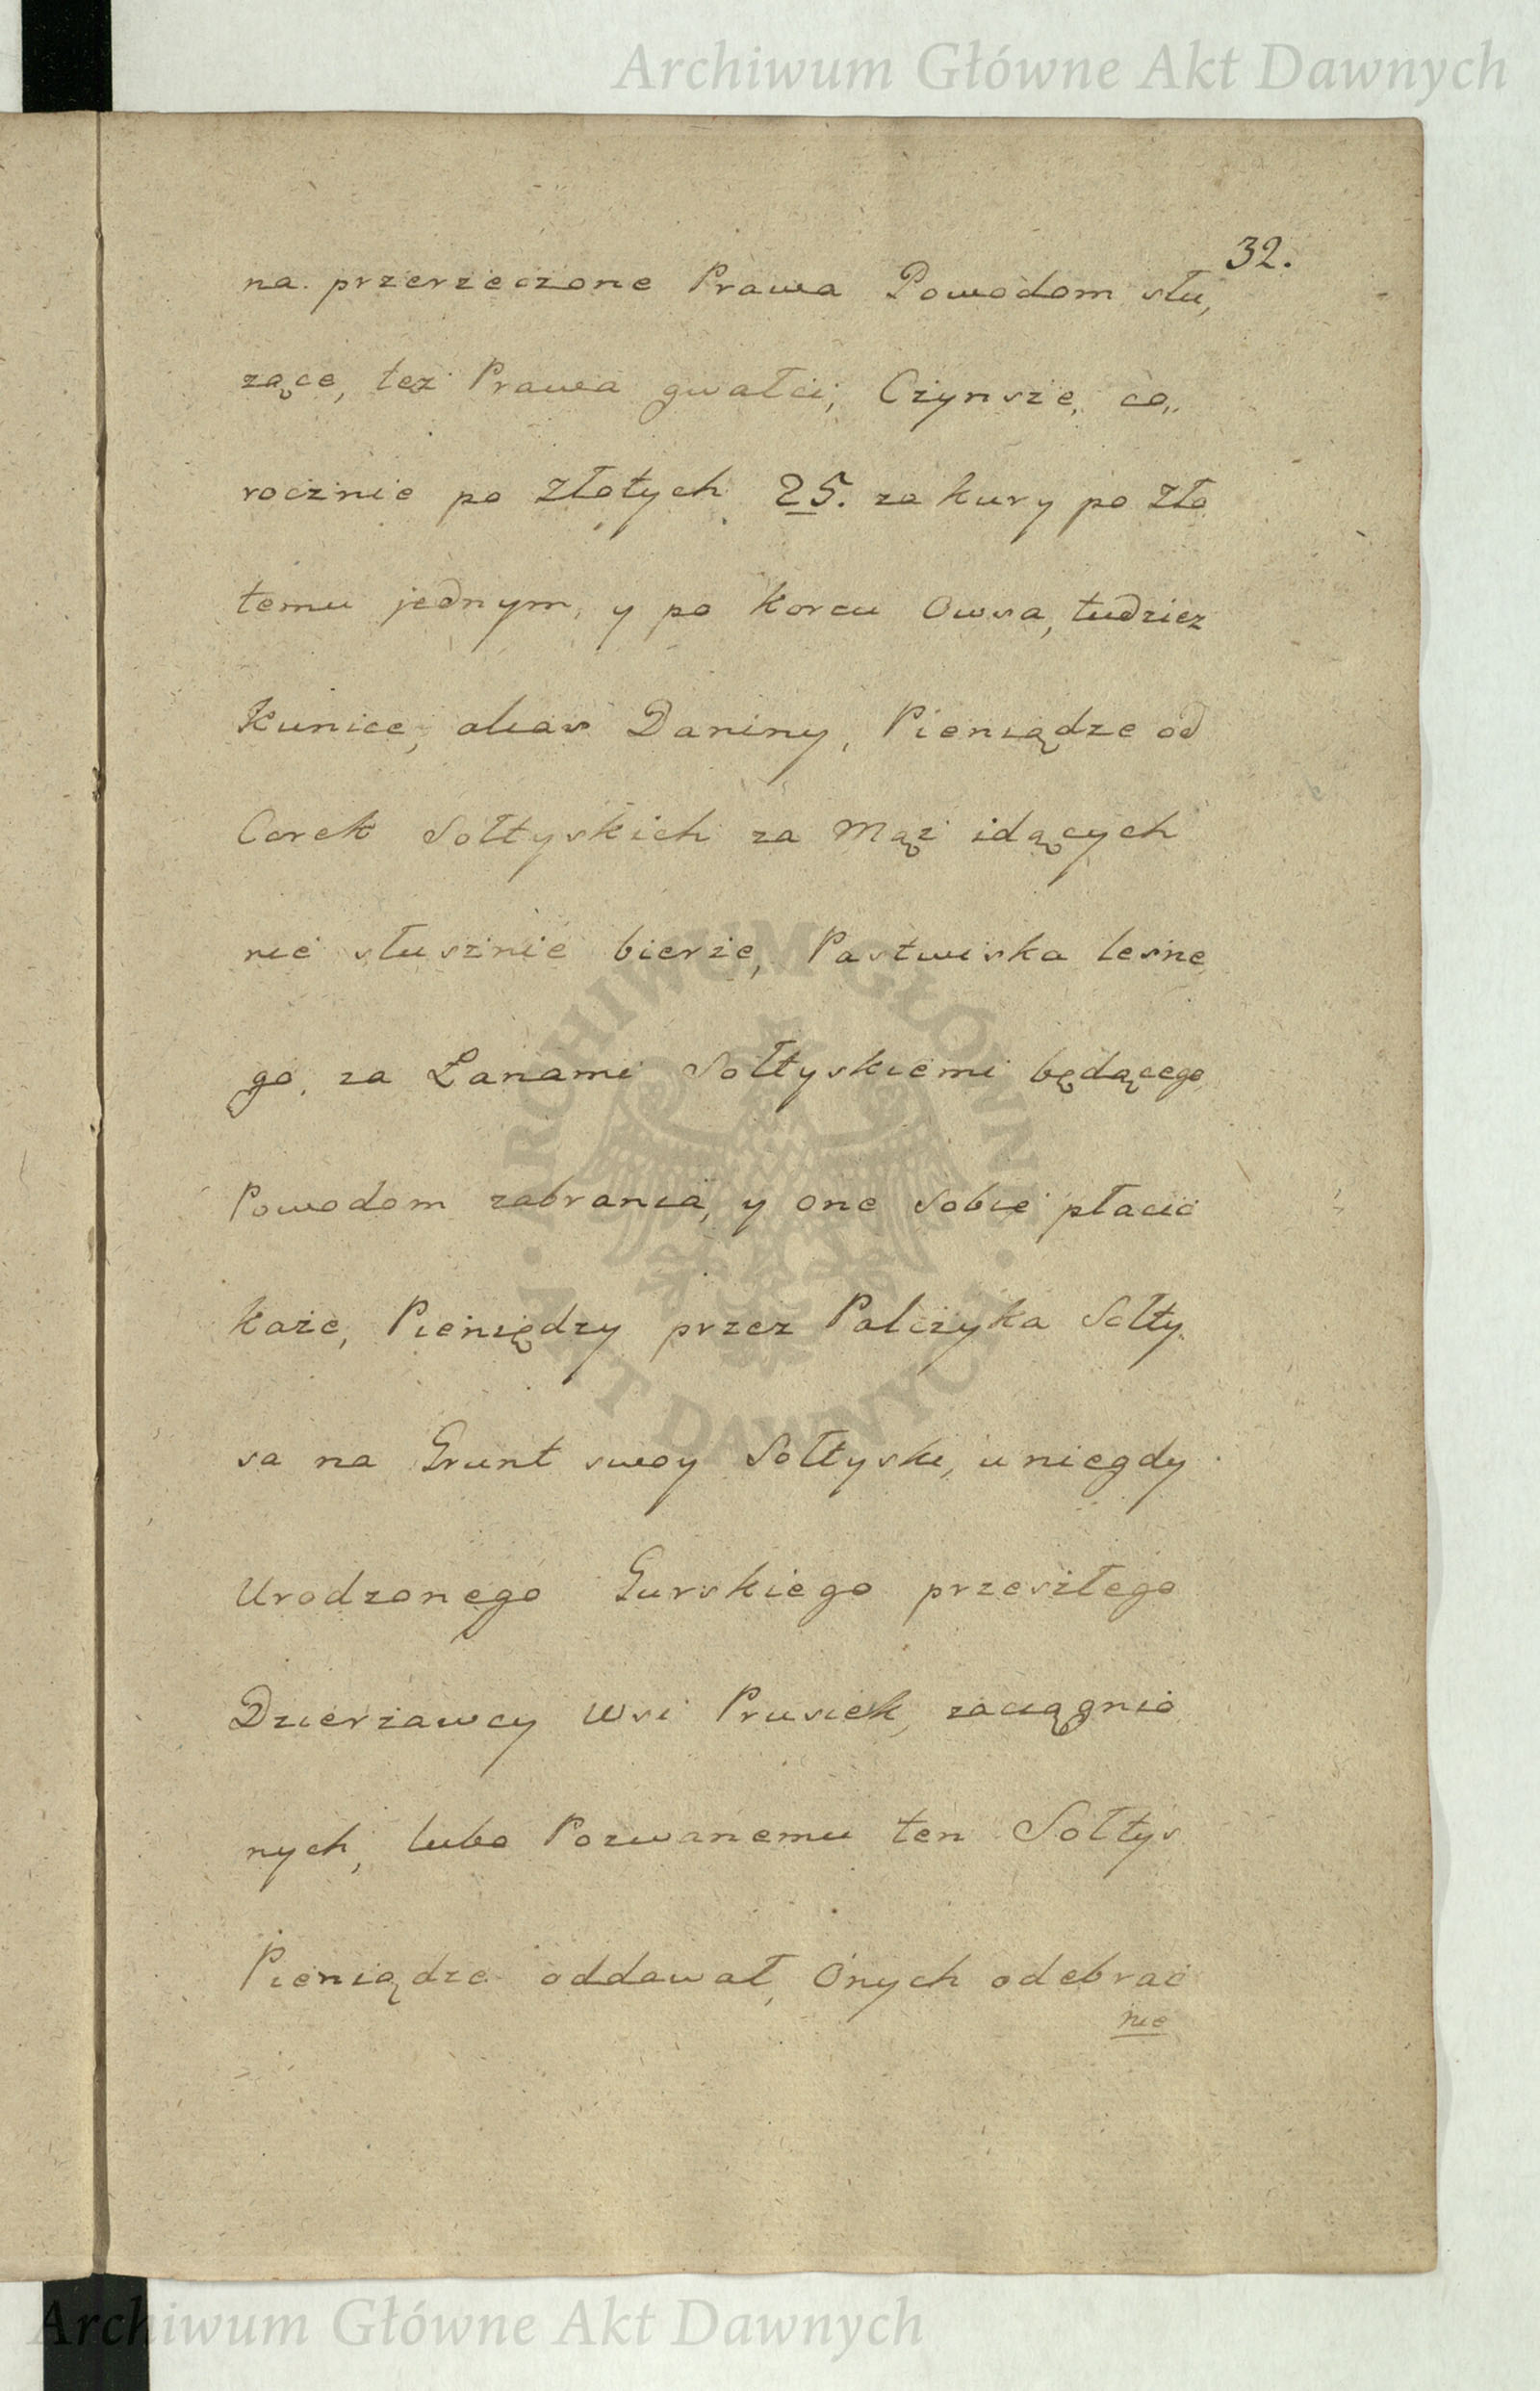 Archiwum Główne Akt Dawnych
32.
na przerzeczone Prawa Powodom słu,
zące, też Prawa gwałci, Czynsze, co,,
rocznie po Złotych 25. za kury po Zło
temu jednym, y po Korcu Owsa, tudziez
Kunice, alias Daniny, Pieniądze od
Corek Sołtyskich za Mąż idących
nie słusznie bierze, Pastwiska leśne
go, za Łanami Sołtyskiemi będącego
Powodom zabrania, y one Sobie płacić
każe, Pieniędzy przez Palczyka Sołty
sa na Grunt swoy Sołtyski, u niegdy
Urodzonego Gurskiego przeszłego
Dzierżawcy Wsi Prusiek, zaciągnio
nych, lubo Pozwanemu ten Sołtys
Pieniądze oddawał, Onych odebrać
nie
ARCHIWUM GŁÓWNE
AKT DAWNYCH
Archiwum Główne Akt Dawnych